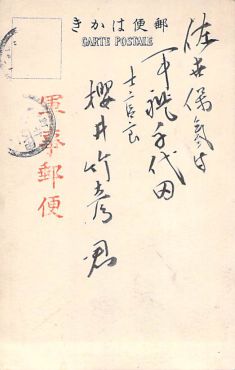 きかは便郵
CARTE POSTALE
佐世保氣付
軍艦千代田
士官室
櫻井竹彦君
軍事郵便